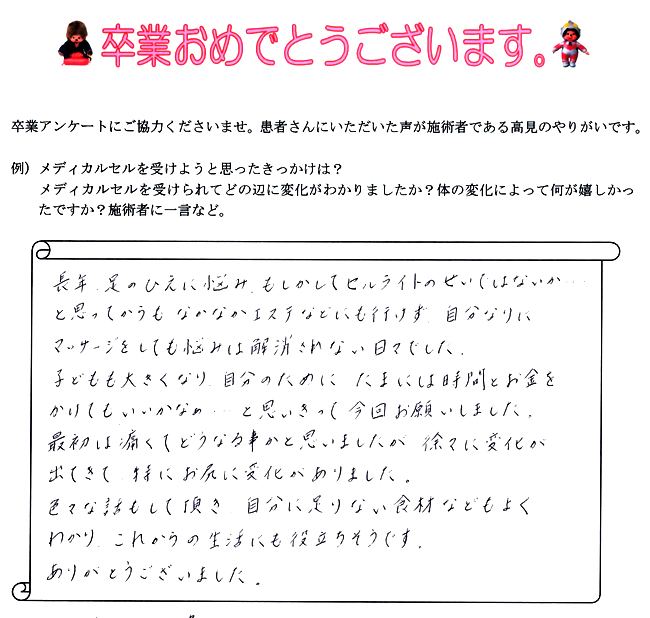 卒業おめでとうございます。
卒業アンケートにご協力くださいませ。患者さんにいただいた声が施術者である高見のやりがいです。
例）メディカルセルを受けようと思ったきっかけは？
メディカルセルを受けられてどの辺に変化がわかりましたか？体の変化によって何が嬉しかっ
たですか？施術者に一言など。
長年、足のひえに悩み、もしかしてセルライトのせいではないか…
と思ってからも なかなかエステなどにも行けず、自分なりに
マッサージをしても悩みは解消されない日々でした。
子どもも大きくなり、自分のために たまには時間とお金を
かけてもいいかなぁ…と思いきって今回お願いしました。
最初は痛くてどうなる事かと思いましたが 徐々に変化が
出てきて、特にお尻に変化がありました。
色々な話もして頂き、自分に足りない食材などもよく
わかり、これからの生活にも役立ちそうです。
ありがとうございました。